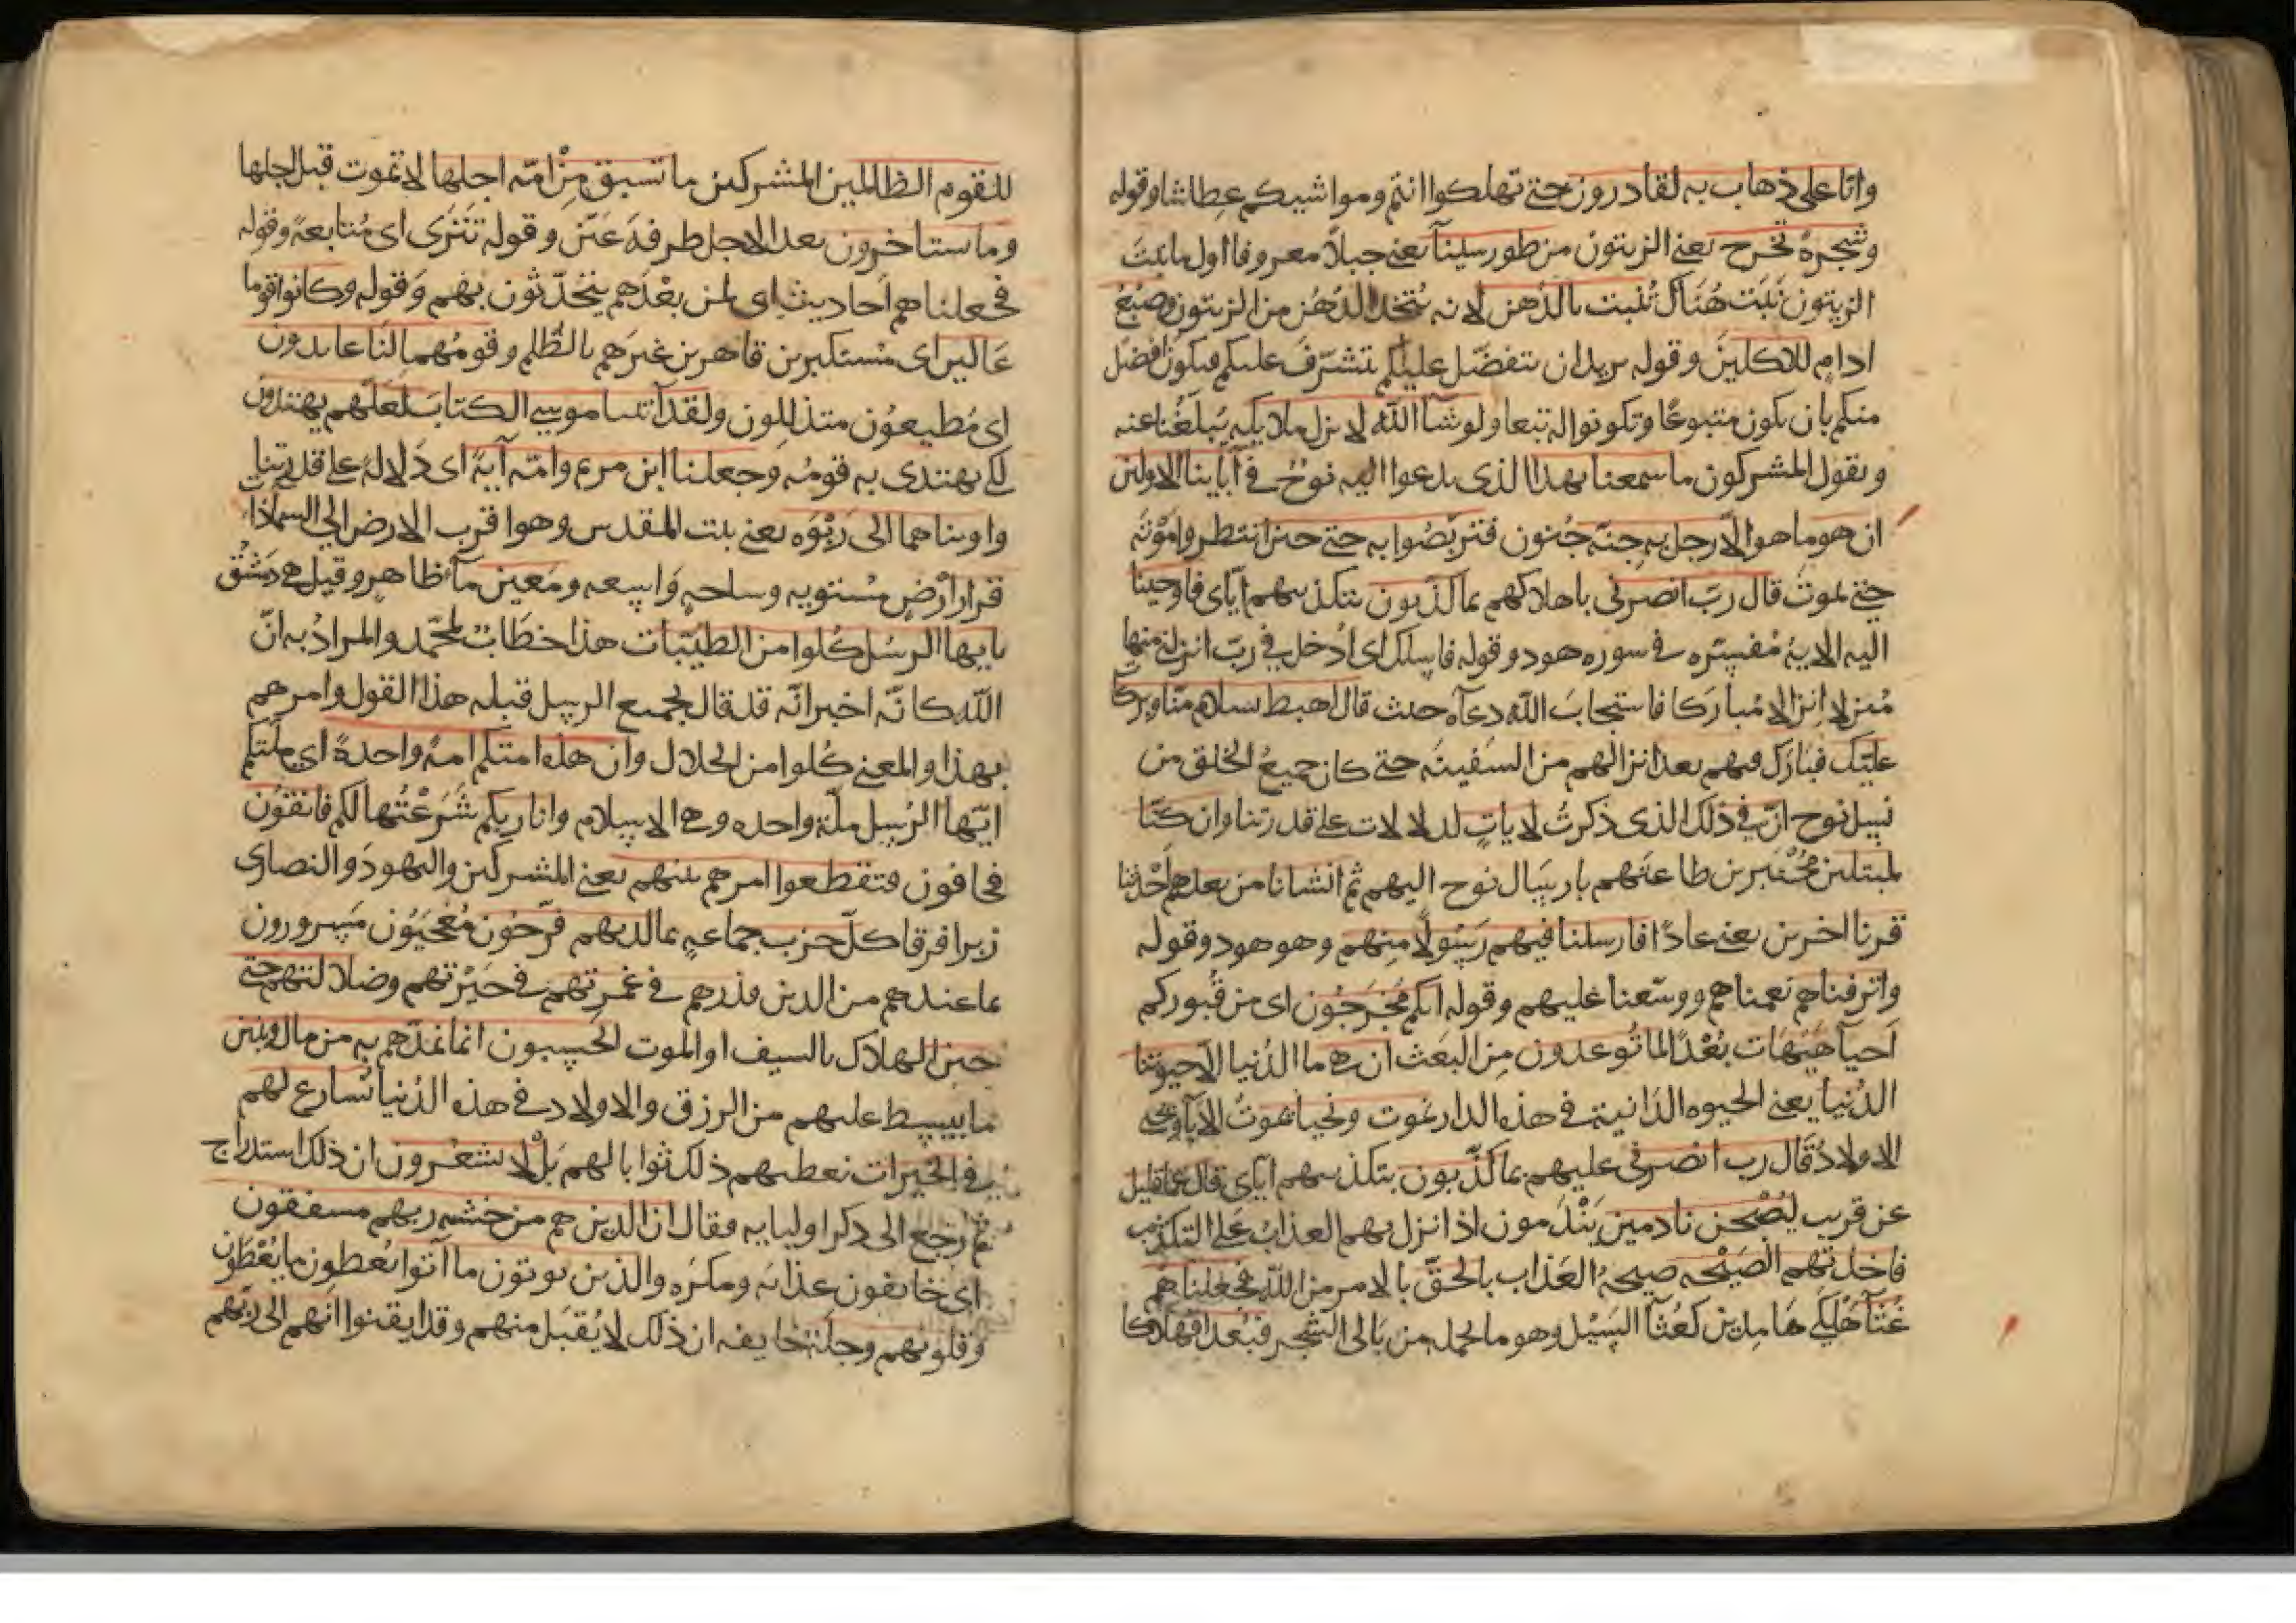 وانا على ذهاب به لقادرون حتى تهلكوا انتم ومواشيكم عطاشا وقوله
وشجرة تخرج يعنى الزيتون من طور سينآ يعنى جبلا معروفا اول ما ينبت
الزيتون نبت هناك تنبت بالدهن لانه يتخذ الدهن من الزيتون وصبغ
ادام للاكلين وقوله يريد ان يتفضل عليكم يتشرف عليكم فيكون افضل
منكم بان يكون متبوعا وتكونوا له تبعا ولو شآ الله لانزل ملايكه يبلغنا عنه
ويقول المشركون ما سمعنا بهذا الذى يدعوا اليه نوح فى آبآينا الاولين
ان هو ما هو الا رجل به جنه جنون فتربصوا به حتى حين انتظروا موته
حتى يموت قال رب انصرنى باهلاكهم بما كذبون بتكذيبهم اياى فاوحينا
اليه الاية مفسره فى سوره هود وقوله فاسلك اى ادخل فى رب انزلنى منها
منزلا انزالا مباركا فاستجاب الله دعآه حيث قال اهبط بسلام منا وبركات
عليك فبارك فيهم بعد انزالهم من السفينه حتى كان جميع الخلق من
نسل نوح ان فى ذلك الذى ذكرت لايات لدلالات على قدرتنا وان كنا
لمبتلين مختبرين طاعتهم بارسال نوح اليهم ثم انشانا من بعدهم احدثنا
قرنا اخرين يعنى عادا فارسلنا فيهم رسولا منهم وهو هود وقوله
واترفناهم نعمناهم ووسعنا عليهم وقوله انكم مخرجون اى من قبوركم
احيآ هيهات بعدا لما توعدون من البعث ان هى ما الدنيا الا حيوتنا
الدنيا يعنى الحيوه الدانية فى هذه الدار نموت ونحيا نموت الابآ ونحيى
الاولاد قال رب انصرنى عليهم بما كذبون بتكذيبهم اياى قال عما قليل
عن قريب ليصبحن نادمين يندمون اذا نزل بهم العذاب على التكذيب
فاخذتهم الصيحه صيحة العذاب بالحق بالامر من الله فجعلناهم
غثآ هلكى هامدين كغثآ السيل وهو ما يحمله من بالى الشجر فبعدا فهلاكا
للقوم الظالمين المشركين ما تسبق من امة اجلها لا تموت قبل اجلها
وما يستاخرون بعد الاجل طرفة عين وقوله تترى اى متابعة وقوله
فجعلناهم احاديث اى لمن بعدهم يتحدثون بهم وقوله وكانوا قوما
عالين اى مستكبرين قاهرين غيرهم بالظلم وقومهما لنا عابدون
اى مطيعون متذللون ولقد آتينا موسى الكتاب لعلهم يهتدون
لكى يهتدى به قومه وجعلنا ابن مريم وامه آية اى دلالة على قدرتنا
واويناهما الى ربوه يعنى بيت المقدس وهو اقرب الارض الى السمآ ذات
قرار ارض مستويه وساحه واسعه ومعين مآ ظاهر وقيل هى دمشق
يايها الرسل كلوا من الطيبات هذا خطاب لمحمد والمراد به ان
الله كانه اخبر انه قد قال لجميع الرسل قبله هذا القول وامرهم
بهذا والمعنى كلوا من الحلال وان هذه امتكم امة واحدة اى ملتكم
ايها الرسل ملة واحده وهى الاسلام وانا ربكم شرعتها لكم فاتقون
فخافون فتقطعوا امرهم بينهم يعنى المشركين واليهود والنصارى
زبرا فرقا كل حزب جماعه بما لديهم فرحون معجبون مسرورون
بما عندهم من الدين فذرهم فى غمرتهم فى حيرتهم وضلالتهم حتى
حين الهلاك بالسيف او الموت ايحسبون انما نمدهم به من مال وبنين
ما نبسط عليهم من الرزق والاولاد فى هذه الدنيا نسارع لهم
فى الخيرات نعطيهم ذلك ثوابا لهم بل لا يشعرون ان ذلك استدراج
ثم رجع الى ذكر اوليايه فقال ان الذين هم من خشيه ربهم مشفقون
اى خايفون عذابه ومكره والذين يوتون ما آتوا يعطون ما يعطون
وقلوبهم وجلة خايفه ان ذلك لا يقبل منهم وقد ايقنوا انهم الى ربهم